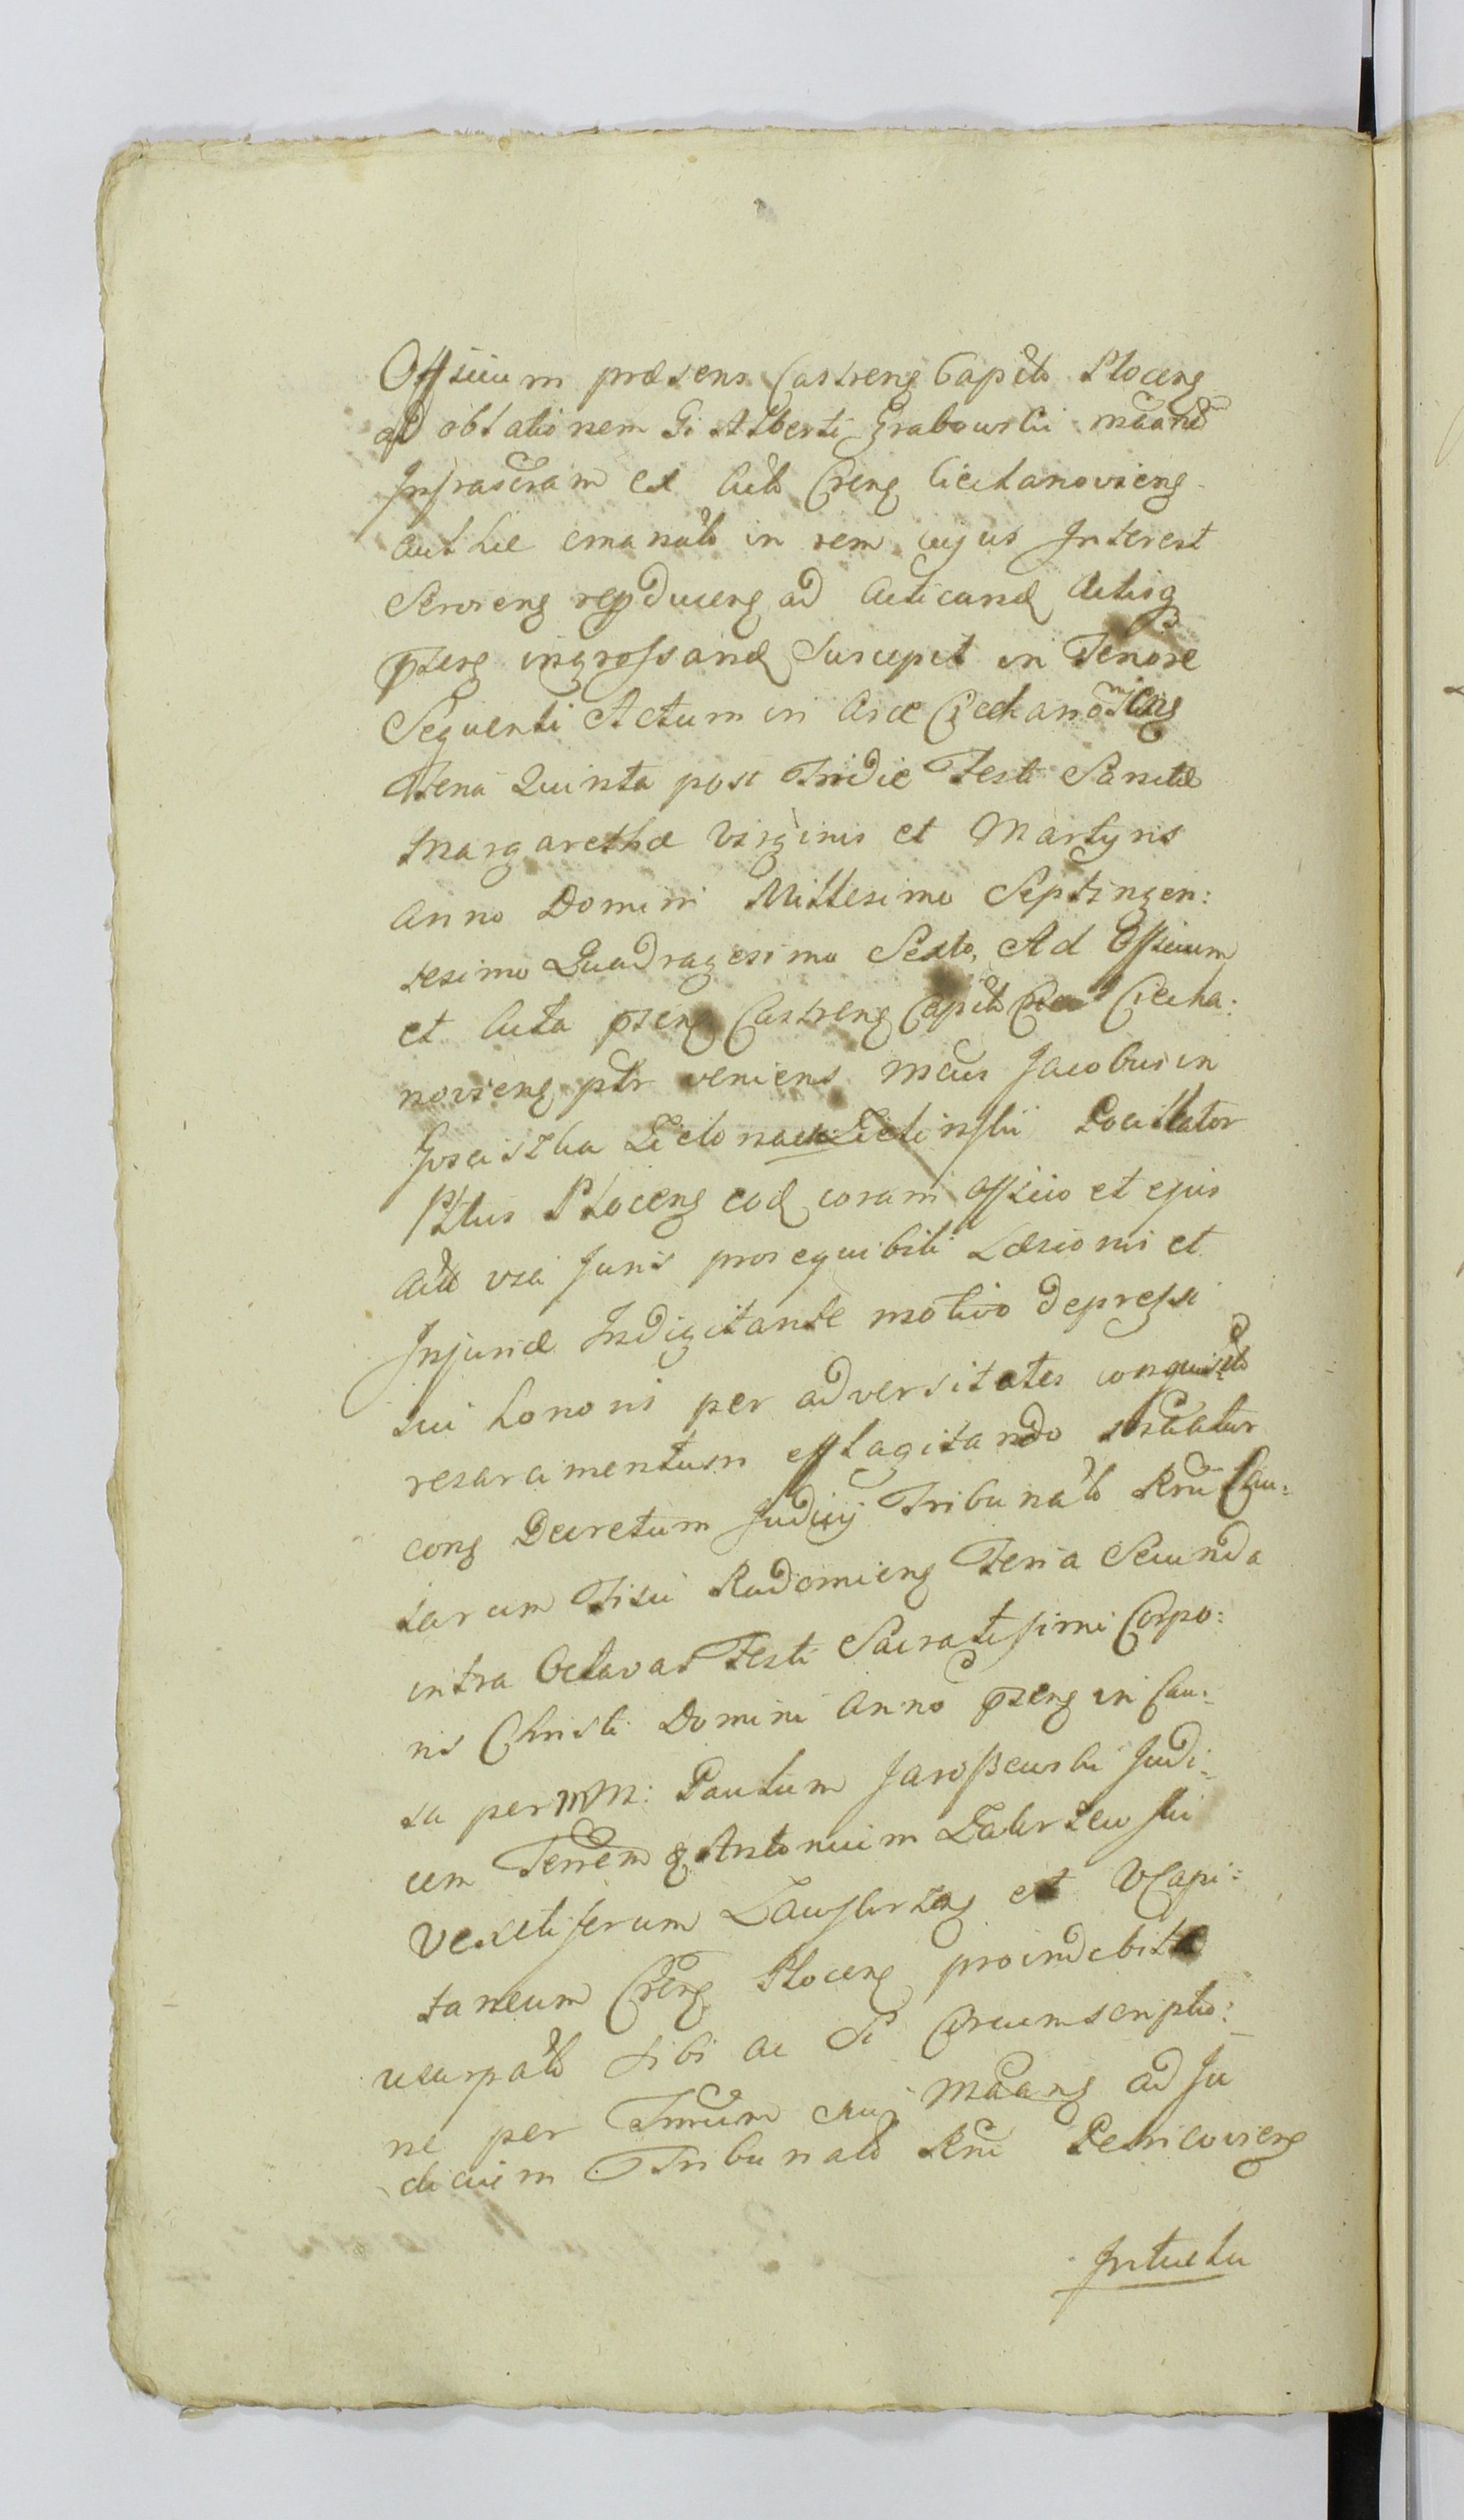 Officium præsens Castreng Capitlo Ploceng
ad oblationem Gi Alberti Grabowski
Infrascram ex Actis Creng Ciechanovieng
authce emanato in rem cujus Interest
Servieng ad acticand Actisq
pseng ingrossand Suscepit in Tenore
Sequenti Actum in Arce Ciechanovieng
Feria Quinta post Tridie Festi Sanctæ
Margarethæ Virginis et Martyris
Anno Domini Millesimo Septingen:
tesimo Quadragesimo Sexto, Ad Officium
et Acta pseng Castreng Capitlo Ciecha:
novieng pltr veniens Mcus Jacobus in
Zielonacz Zielinskii Pocillator
Pltus Ploceng eod coram officio et ejus
Actis via Juris prosequibili Læsionis et
Injuriæ Indigitante motivo depressi
sui honoris per adversitates conquisito
resarcimentum efflagitando
cong Decretum Judicij Tribunalo Rni Cau:
sarum Fisci Radomieng Feria Secunda
intra Octavas Festi Sacratissimi Corpo:
ris Christi Domini Anno pseng in Cau:
sa per MM: Paulum Jaroszewski Judi:
cem Terrem & Antonium Zakrzewski
Vexeliferum Zawskrzeng et VCapi:
taneum Creng Ploceng pro indebite
usurpato sibi ac Si Circumscriptio:
ne per ad Ju
dicium Tribunalo Rni Petricovieng
Intuetu